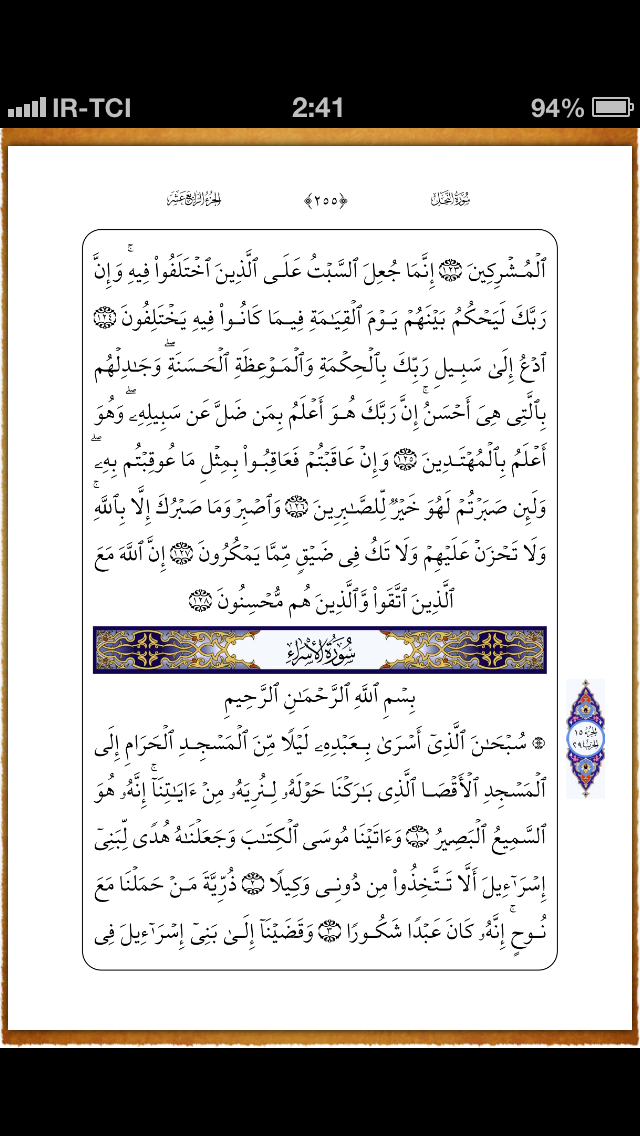 IR-TCI 2:41 94%
سُورَةُ النَّحْل ﴿٢٥٥﴾ الجُزءُ الرَّابِعَ عَشَر
ٱلْمُشْرِكِينَ ١٢٣ إِنَّمَا جُعِلَ ٱلسَّبْتُ عَلَى ٱلَّذِينَ ٱخْتَلَفُوا۟ فِيهِ ۚ وَإِنَّ
رَبَّكَ لَيَحْكُمُ بَيْنَهُمْ يَوْمَ ٱلْقِيَـٰمَةِ فِيمَا كَانُوا۟ فِيهِ يَخْتَلِفُونَ ١٢٤
ٱدْعُ إِلَىٰ سَبِيلِ رَبِّكَ بِٱلْحِكْمَةِ وَٱلْمَوْعِظَةِ ٱلْحَسَنَةِ ۖ وَجَـٰدِلْهُم
بِٱلَّتِى هِىَ أَحْسَنُ ۚ إِنَّ رَبَّكَ هُوَ أَعْلَمُ بِمَن ضَلَّ عَن سَبِيلِهِۦ ۖ وَهُوَ
أَعْلَمُ بِٱلْمُهْتَدِينَ ١٢٥ وَإِنْ عَاقَبْتُمْ فَعَاقِبُوا۟ بِمِثْلِ مَا عُوقِبْتُم بِهِۦ ۖ
وَلَئِن صَبَرْتُمْ لَهُوَ خَيْرٌ لِّلصَّـٰبِرِينَ ١٢٦ وَٱصْبِرْ وَمَا صَبْرُكَ إِلَّا بِٱللَّهِ ۚ
وَلَا تَحْزَنْ عَلَيْهِمْ وَلَا تَكُ فِى ضَيْقٍ مِّمَّا يَمْكُرُونَ ١٢٧ إِنَّ ٱللَّهَ مَعَ
ٱلَّذِينَ ٱتَّقَوا۟ وَّٱلَّذِينَ هُم مُّحْسِنُونَ ١٢٨
سُورَةُ الْإِسْرَاءِ
بِسْمِ ٱللَّهِ ٱلرَّحْمَـٰنِ ٱلرَّحِيمِ
۞ سُبْحَـٰنَ ٱلَّذِىٓ أَسْرَىٰ بِعَبْدِهِۦ لَيْلًا مِّنَ ٱلْمَسْجِدِ ٱلْحَرَامِ إِلَى
ٱلْمَسْجِدِ ٱلْأَقْصَا ٱلَّذِى بَـٰرَكْنَا حَوْلَهُۥ لِنُرِيَهُۥ مِنْ ءَايَـٰتِنَآ ۚ إِنَّهُۥ هُوَ
ٱلسَّمِيعُ ٱلْبَصِيرُ ١ وَءَاتَيْنَا مُوسَى ٱلْكِتَـٰبَ وَجَعَلْنَـٰهُ هُدًى لِّبَنِىٓ
إِسْرَٰٓءِيلَ أَلَّا تَتَّخِذُوا۟ مِن دُونِى وَكِيلًا ٢ ذُرِّيَّةَ مَنْ حَمَلْنَا مَعَ
نُوحٍ ۚ إِنَّهُۥ كَانَ عَبْدًا شَكُورًا ٣ وَقَضَيْنَآ إِلَىٰ بَنِىٓ إِسْرَٰٓءِيلَ فِى
الجزء ١٥
الحزب ٢٩